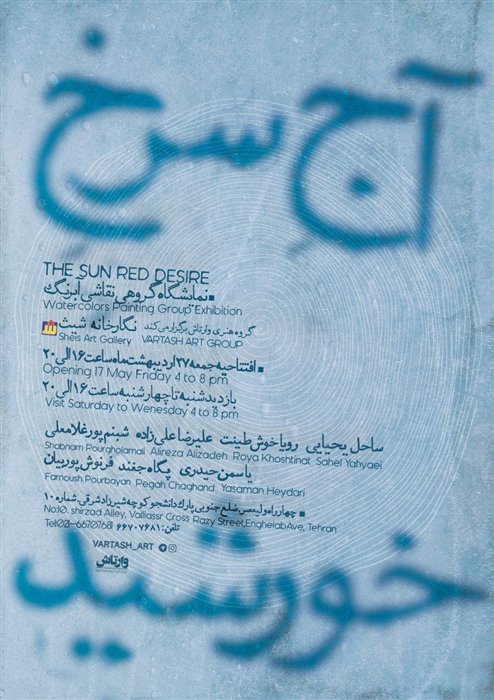 آجِ سرخِ
THE SUN RED DESIRE
نمایشگاه گروهی نقاشی آبرنگ
Watercolors Painting Group Exhibition
گروه هنری وارتاش برگزار می کند نگارخانه شیث
Sheis Art Gallery VARTASH ART GROUP
افتتاحیه جمعه ۲۷ اردیبهشت ماه ساعت ۱۶ الی ۲۰
Opening 17 May Friday 4 to 8 pm
بازدید شنبه تا چهارشنبه ساعت ۱۶ الی ۲۰
Visit Saturday to Wenesday 4 to 8 pm
ساحل یحیایی رویا خوش طینت علیرضا علی زاده شبنم پورغلامعلی
Shabnam Pourgholamali Alireza Alizadeh Roya Khoshtinat Sahel Yahyaei
یاسمن حیدری پگاه جغند فرنوش پوربیان
Farnoush Pourbayan Pegah Chaghand Yasaman Heydari
چهارراه ولیعصر، ضلع جنوبی پارک دانشجو کوچه شیرزاد شرقی شماره ۱۰
No:10, shirzad Alley, Valiassr Cross Razy Street, Enghelab Ave, Tehran
Tel:021-66707681 تلفن: ۶۶۷۰۷۶۸۱
VARTASH_ART
وارتاش
خورشید